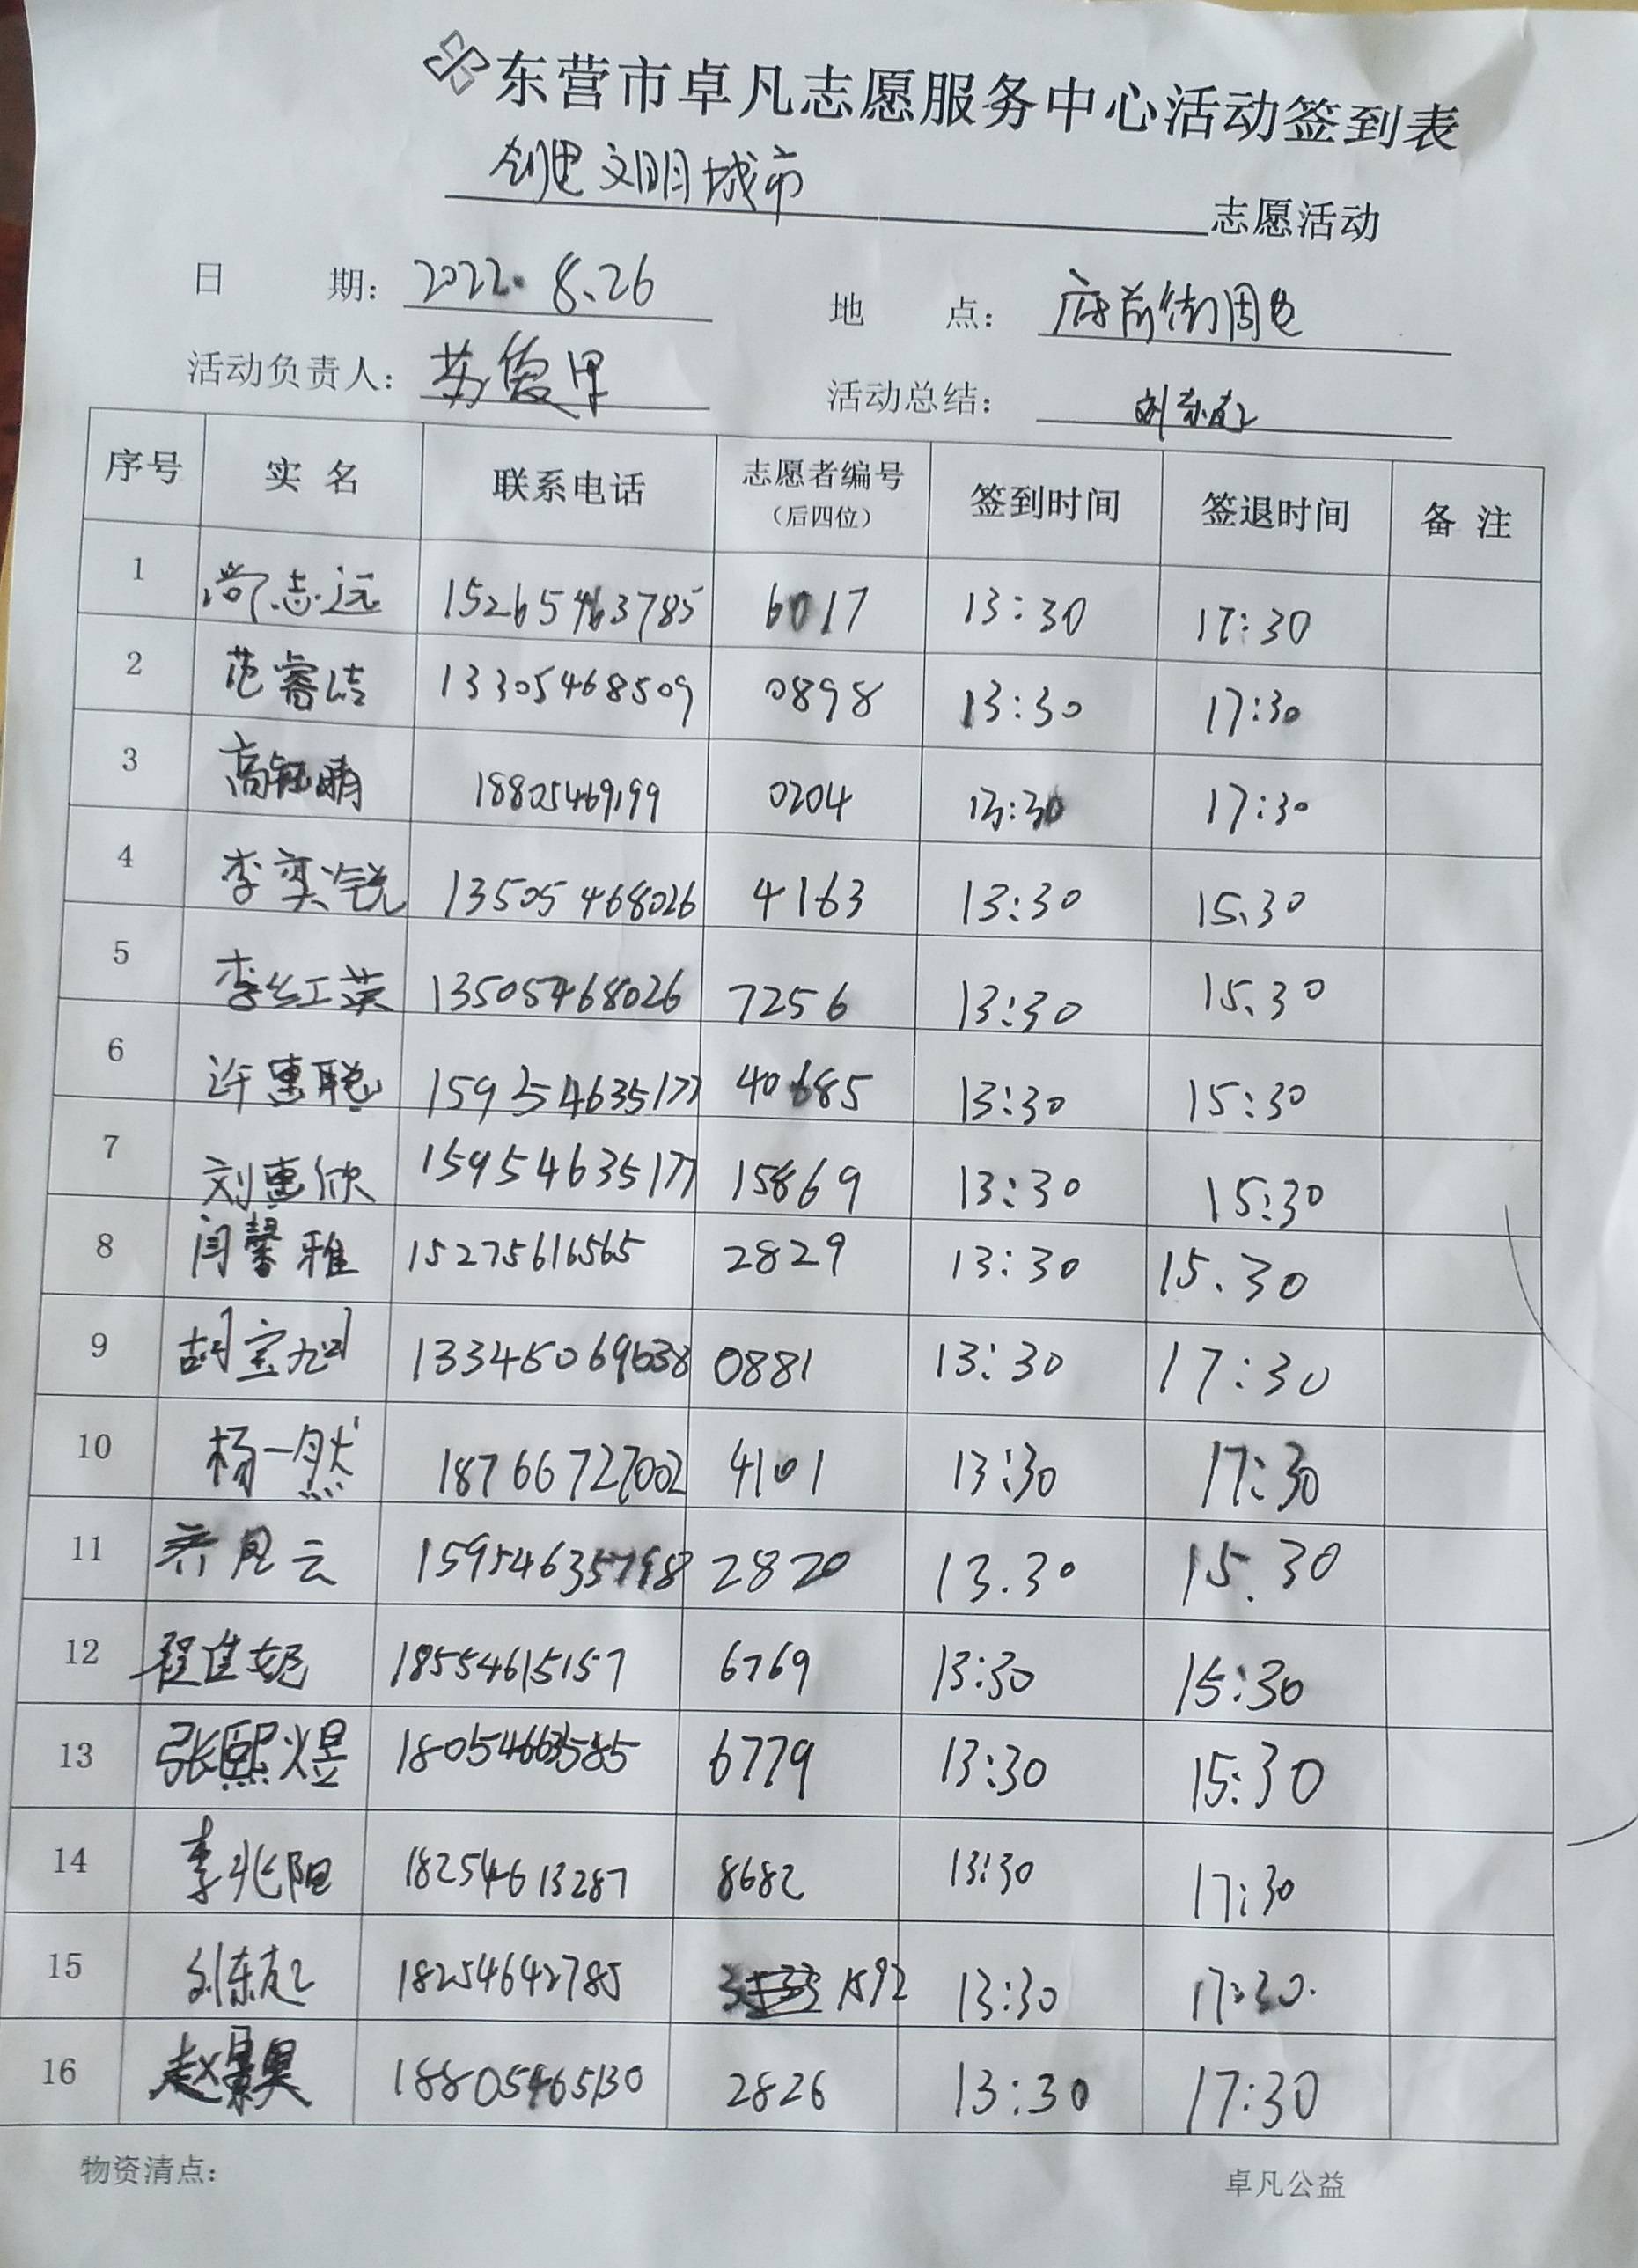 东营市卓凡志愿服务中心活动签到表
创建文明城市 志愿活动
日 期： 2022.8.26 地 点： 府前街周边
活动负责人： 苏 活动总结： 刘东
序号 实名 联系电话 志愿者编号（后四位） 签到时间 签退时间 备注
1 尚志远 15265463785 6017 13:30 17:30
2 范睿洁 13305468509 0898 13:30 17:30
3 高钰晴 18805469199 0204 13:30 17:30
4 李奕锐 13505468026 4163 13:30 15.30
5 李红英 13505468026 7256 13:30 15.30
6 许惠聪 15954635177 40685 13:30 15:30
7 刘惠欣 15954635177 15869 13:30 15:30
8 闫馨雅 15275616565 2829 13:30 15.30
9 胡宝旭 0881 13:30 17:30
10 杨一然 18766727002 4101 13:30 17:30
11 云 15954635798 2820 13.30 15.30
12 程佳妮 18554615157 6769 13:30 15:30
13 张熙煜 18054663585 6779 13:30 15:30
14 李兆阳 18254613287 8682 13:30 17:30
15 刘东 18254642785 1592 13:30 17:30.
16 赵景昊 18805465130 2826 13:30 17:30
物资清点： 卓凡公益